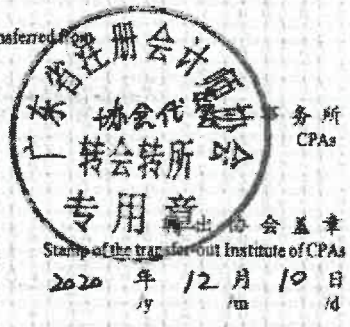 nsferred from
广东省注册会计师协会
协会代管
事务所
CPAs
转会转所
专用章
转出协会盖章
Stamp of the transfer-out Institute of CPAs
2020 年 12 月 10 日
/y /m /d